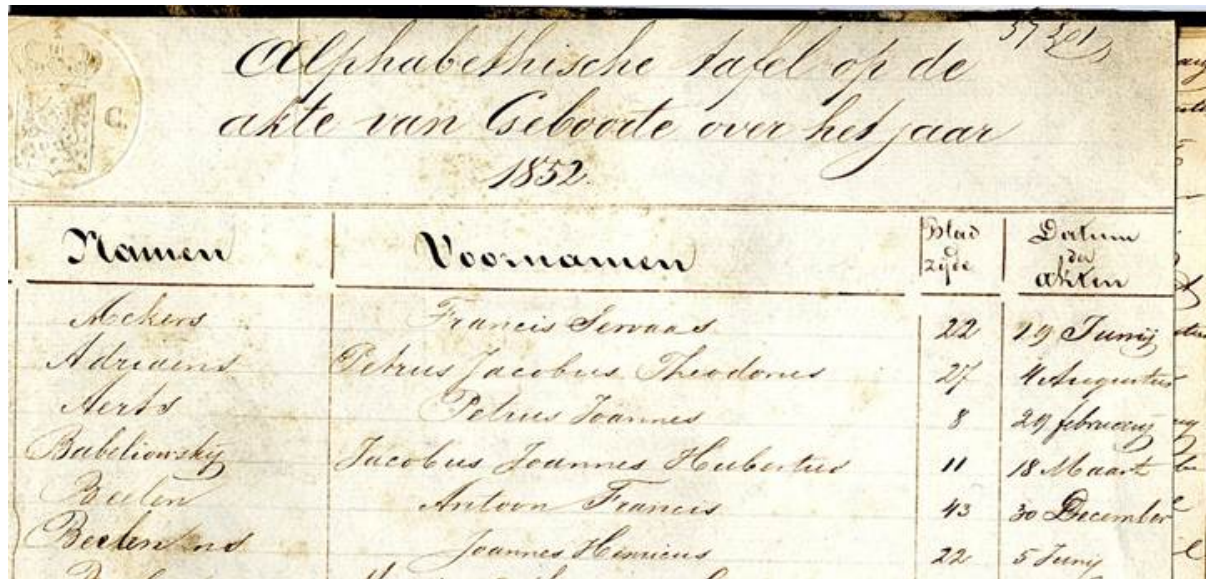 Alphabethische tafel op de
akte van Geboorte over het jaar
1852.
Namen Voornamen Blad zijde Datum der akten
Ackers Francis Servaas 22 29 Junij
Adriaens Petrus Jacobus Theodorus 27 4 Augustus
Aerts Petrus Joannes 8 29 februarij
Babeliowsky Jacobus Joannes Hubertus 11 18 Maart
Beelen Antoon Francis 43 30 December
Joannes Henricus 22 5 Junij